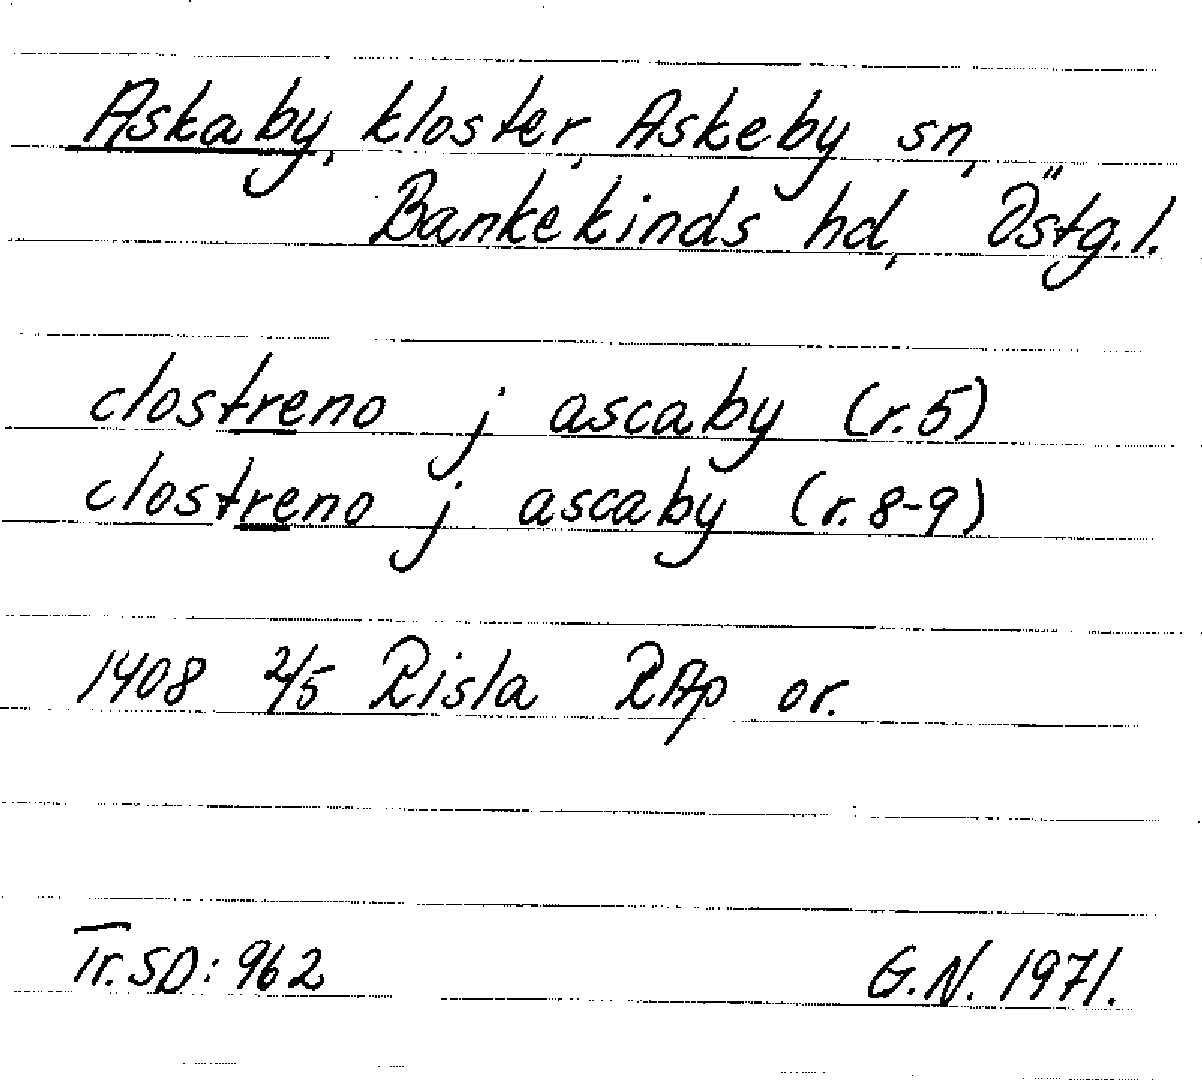 Askaby, kloster, Askeby sn,
Bankekinds hd, Östg.l.
clostreno j ascaby (r.5)
clostreno j ascaby (r.8-9)
1408 2/5 Risla RAp or.
Tr. SD: 962 G.N. 1971.